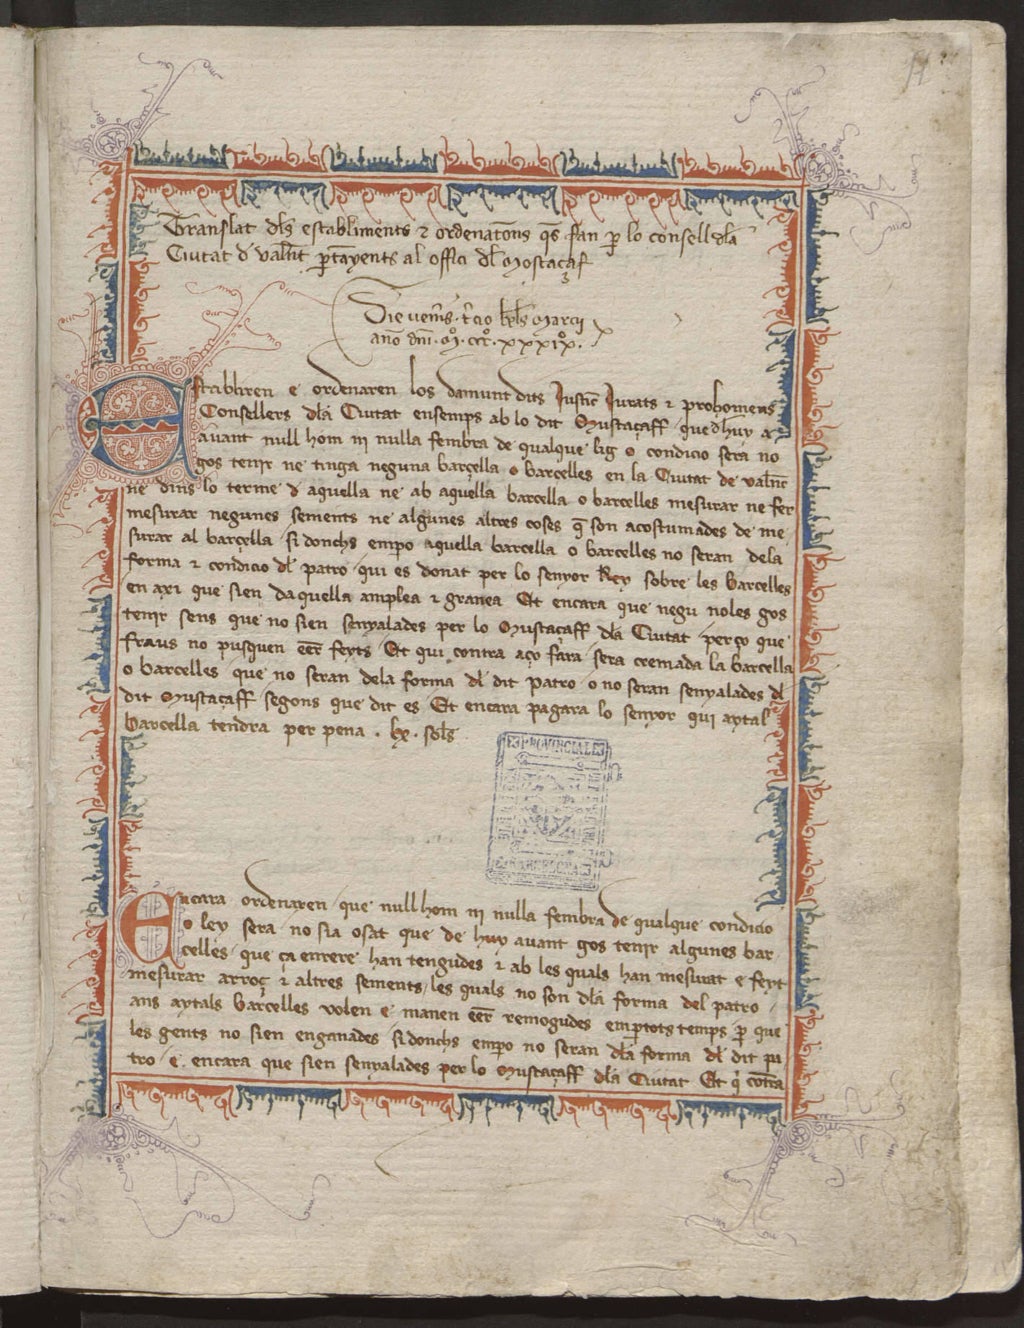 Translat dls establiments ⁊ ordenatons qs fan p lo consell dla
Ciutat d valnt ptayents al offici dl Mostaçaf
Die uenis tcio kls marcii
año dni M ccc xxxix
Establiren e ordenaren los damunt dits Justic Jurats ⁊ prohomens
Consellers dla Ciutat ensemps ab lo dit Mustaçaff que dhuy a
auant null hom ni nulla fembra de qualque lig o condicio sera no
gos tenir ne tinga neguna barçella o barcelles en la Ciutat de valnt
ne dins lo terme d aquella ne ab aquella barcella o barcelles mesurar ne fer
mesurar negunes sements ne algunes altres coses q son acostumades de me
surar al barçella si donchs empo aquella barcella o barcelles no seran dela
forma ⁊ condicio dl patro qui es donat per lo senyor Rey sobre les barcelles
en axi que sien daquella amplea ⁊ granea Et encara que negu noles gos
tenir sens que no sien senyalades per lo Mustaçaff dla Ciutat perço que
fraus no pusquen eer feyts Et qui contra aço fara sera cremada la barcella
o barcelles que no seran dela forma dl dit patro o no seran senyalades dl
dit Mustaçaff segons que dit es Et encara pagara lo senyor qui aytal
barcella tendra per pena . lx . sols
PROVINCIALES
BARCELONA
Encara ordenaren que null hom ni nulla fembra de qualque condicio
o ley sera no sia osat que de huy auant gos tenir algunes bar
celles que ça enrere han tengudes ⁊ ab les quals han mesurat e feyt
mesurar arroç ⁊ altres sements les quals no son dla forma del patro
ans aytals barcelles volen e manen eer remogudes emptots temps p que
les gents no sien enganades si donchs empo no seran dla forma dl dit pa
tro e encara que sien senyalades per lo Mustaçaff dla Ciutat Et q cotra